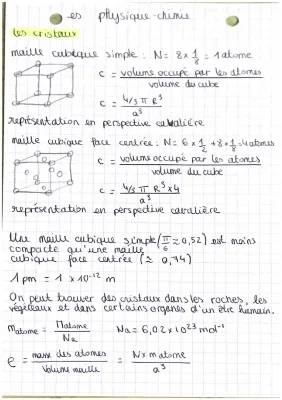 es physique-chimie
les cristaux
maille cubique simple : N = 8 × 1/8 = 1 atome
c = volume occupé par les atomes / volume du cube
c = 4/3 π R³ / a³
représentation en perspective cavalière
maille cubique face centrée : N = 6 × 1/2 + 8 × 1/8 = 4 atomes
c = volume occupé par les atomes / volume du cube
c = 4/3 π R³ × 4 / a³
représentation en perspective cavalière
Une maille cubique simple (π/6 ≈ 0,52) est moins
compacte qu'une maille
cubique face centrée (≈ 0,74)
1 pm = 1 × 10⁻¹² m
On peut trouver des cristaux dans les roches, les
végétaux et dans certains organes d'un être humain.
m atome = M atome / Na Na = 6,02 × 10²³ mol⁻¹
ρ = masse des atomes / Volume maille = N × m atome / a³